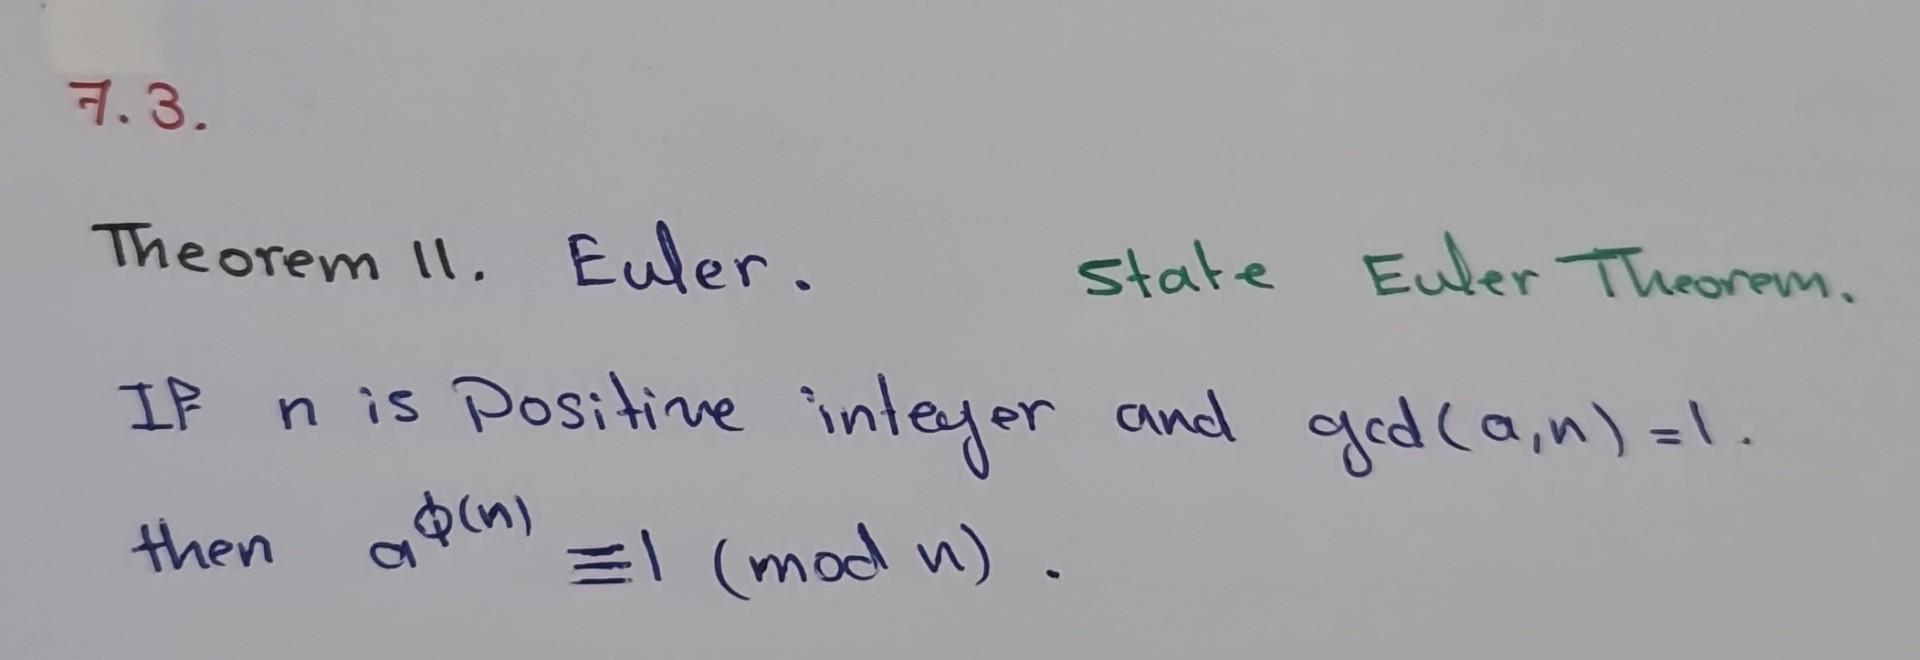 7.3.
Theorem 11. Euler. State Euler Theorem.
If n is Positive integer and gcd(a,n)=1.
then a^ϕ(n) ≡1 (mod n).